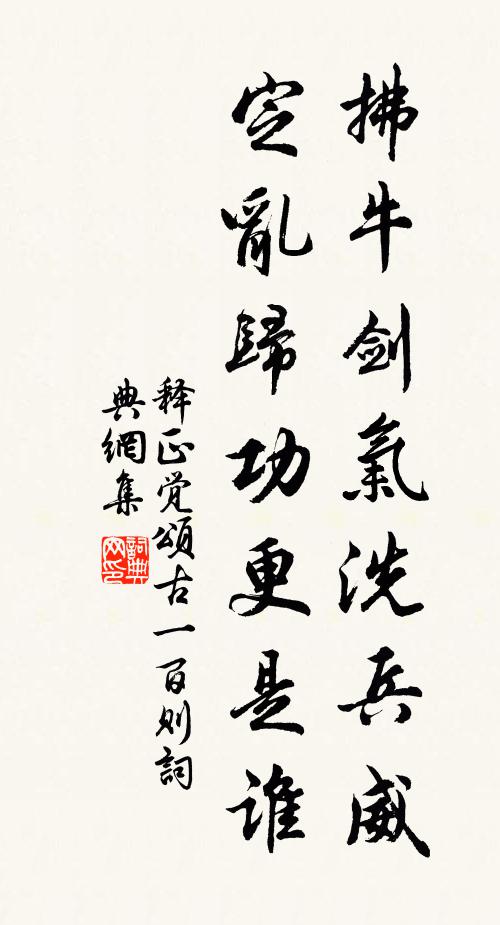 拂牛剑氣洗兵威
定亂歸功更是谁
释正觉頌古一百则詞
典網集
詞典
网印